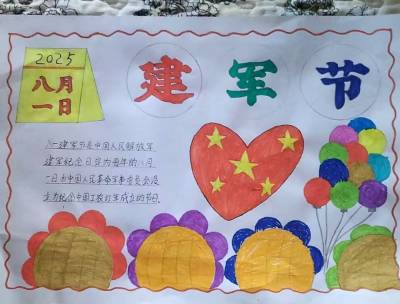 2025
八月
一日
建军节
八一建军节是中国人民解放军
建军纪念日定为每年的八月
一日由中国人民革命军事委员会设
立为纪念中国工农红军成立的节日